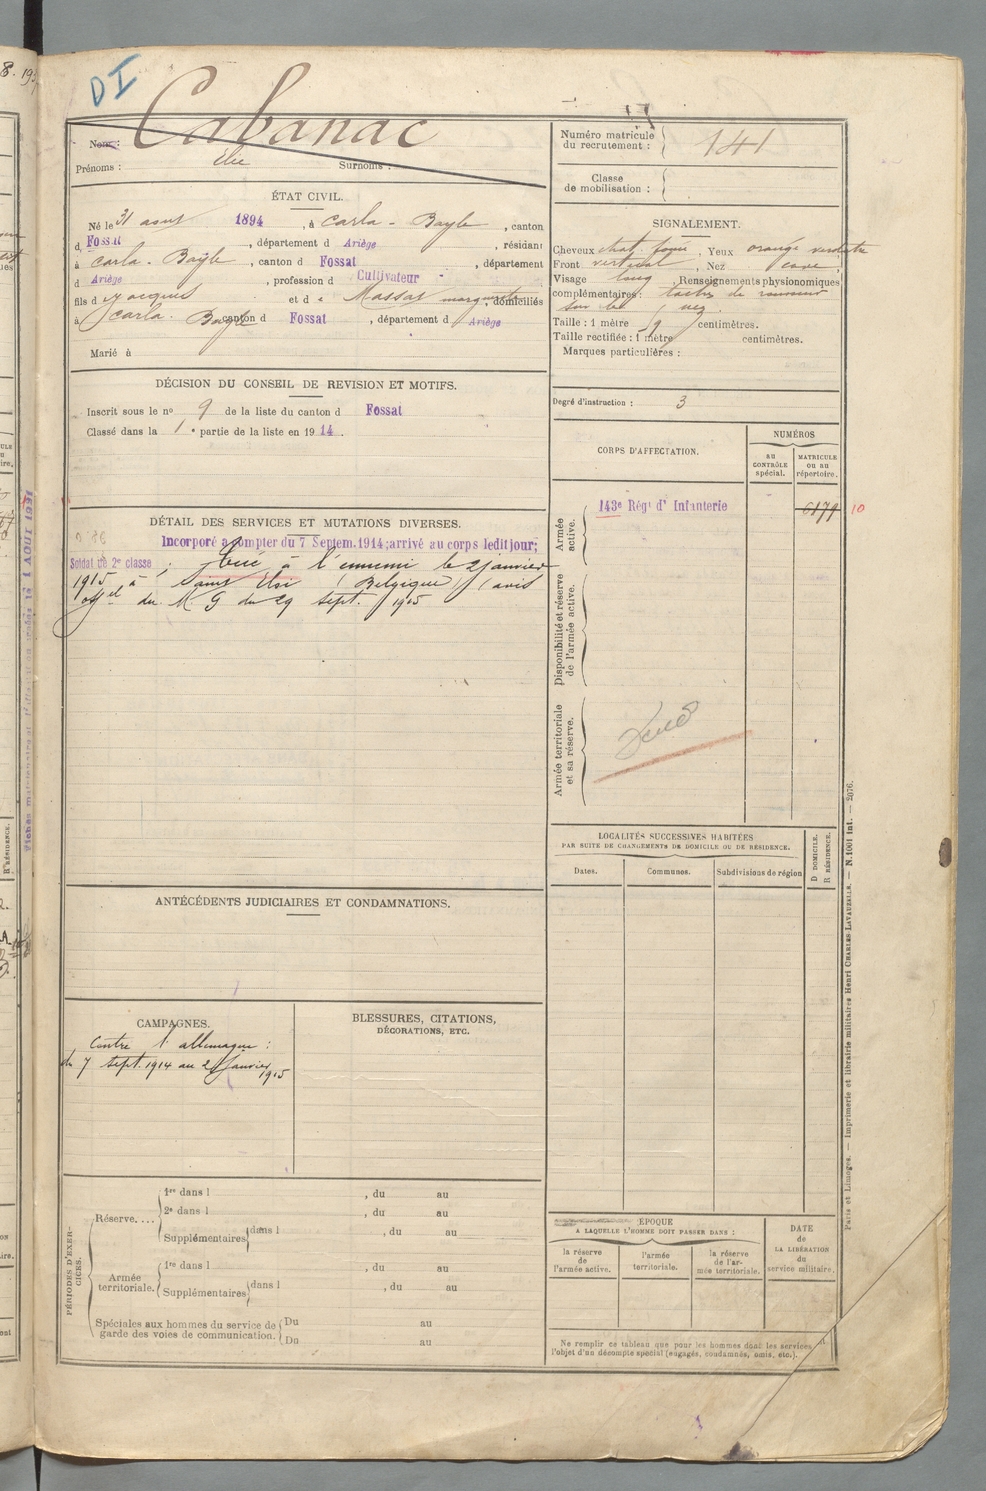 DI
Nom : Cabanac
Prénoms : élie Surnoms :
ÉTAT CIVIL.
Né le 31 août 1894, à Carla-Bayle, canton
d Fossat, département d Ariège, résidant
à Carla-Bayle, canton d Fossat, département
d Ariège, profession d Cultivateur
fils d Jacques et d Massat marguerite, domiciliés
à Carla-Bayle canton d Fossat, département d Ariège
Marié à
DÉCISION DU CONSEIL DE REVISION ET MOTIFS.
Inscrit sous le nº 9 de la liste du canton d Fossat
Classé dans la 1e partie de la liste en 1914.
DÉTAIL DES SERVICES ET MUTATIONS DIVERSES.
Incorporé à compter du 7 Septem. 1914; arrivé au corps ledit jour;
Soldat de 2e classe ; Tué à l'ennemi le 2 janvier
1915 à (Belgique) (avis
offel du M. G du 29 sept. 1915
ANTÉCÉDENTS JUDICIAIRES ET CONDAMNATIONS.
CAMPAGNES.
Contre l'allemagne :
du 7 sept. 1914 au 2 janvier
1915
BLESSURES, CITATIONS,
DÉCORATIONS, ETC.
PÉRIODES D'EXERCICES.
Réserve....
1re dans l , du au
2e dans l , du au
Supplémentaires dans l , du au
Armée
territoriale.
1re dans l , du au
Supplémentaires dans l , du au
Spéciales aux hommes du service de
garde des voies de communication.
Du au
Du au
Numéro matricule
du recrutement : 141
Classe
de mobilisation :
SIGNALEMENT.
Cheveux chat. foncé, Yeux orangé verdâtre
Front vertical, Nez cave,
Visage long, Renseignements physionomiques
complémentaires : taches de rousseur
sur le nez
Taille : 1 mètre 59 centimètres.
Taille rectifiée : 1 mètre centimètres.
Marques particulières :
Degré d'instruction : 3
CORPS D'AFFECTATION.
NUMÉROS
AU
CONTRÔLE
spécial.
MATRICULE
OU AU
répertoire.
Armée
active.
143e Régt d'Infanterie 6179 10
Disponibilité et réserve
de l'armée active.
Armée territoriale
et sa réserve.
LOCALITÉS SUCCESSIVES HABITÉES
PAR SUITE DE CHANGEMENTS DE DOMICILE OU DE RÉSIDENCE.
Dates.
Communes.
Subdivisions de région
D DOMICILE.
R RÉSIDENCE.
ÉPOQUE
A LAQUELLE L'HOMME DOIT PASSER DANS :
la réserve
de
l'armée active.
l'armée
territoriale.
la réserve
de l'ar-
mée territoriale.
DATE
de
LA LIBÉRATION
du
service militaire.
Ne remplir ce tableau que pour les hommes dont les services
l'objet d'un décompte spécial (engagés, condamnés, omis, etc.).
Paris et Limoges. — Imprimerie et librairie militaires Henri CHARLES-LAVAUZELLE. — N. 1001 int. — 2076.